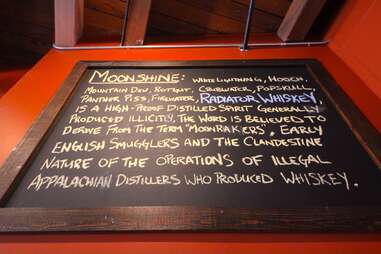 MOONSHINE: WHITE LIGHTNING, HOOCH,
MOUNTAIN DEW, ROTGUT, CRUBWATER, POPSKULL,
PANTHER PISS, FIREWATER, RADIATOR WHISKEY,
IS A HIGH-PROOF DISTILLED SPIRIT GENERALLY
PRODUCED ILLICITLY. THE WORD IS BELIEVED TO
DERIVE FROM THE TERM "MOONRAKERS", EARLY
ENGLISH SMUGGLERS AND THE CLANDESTINE
NATURE OF THE OPERATIONS OF ILLEGAL
APPALACHIAN DISTILLERS WHO PRODUCED WHISKEY.